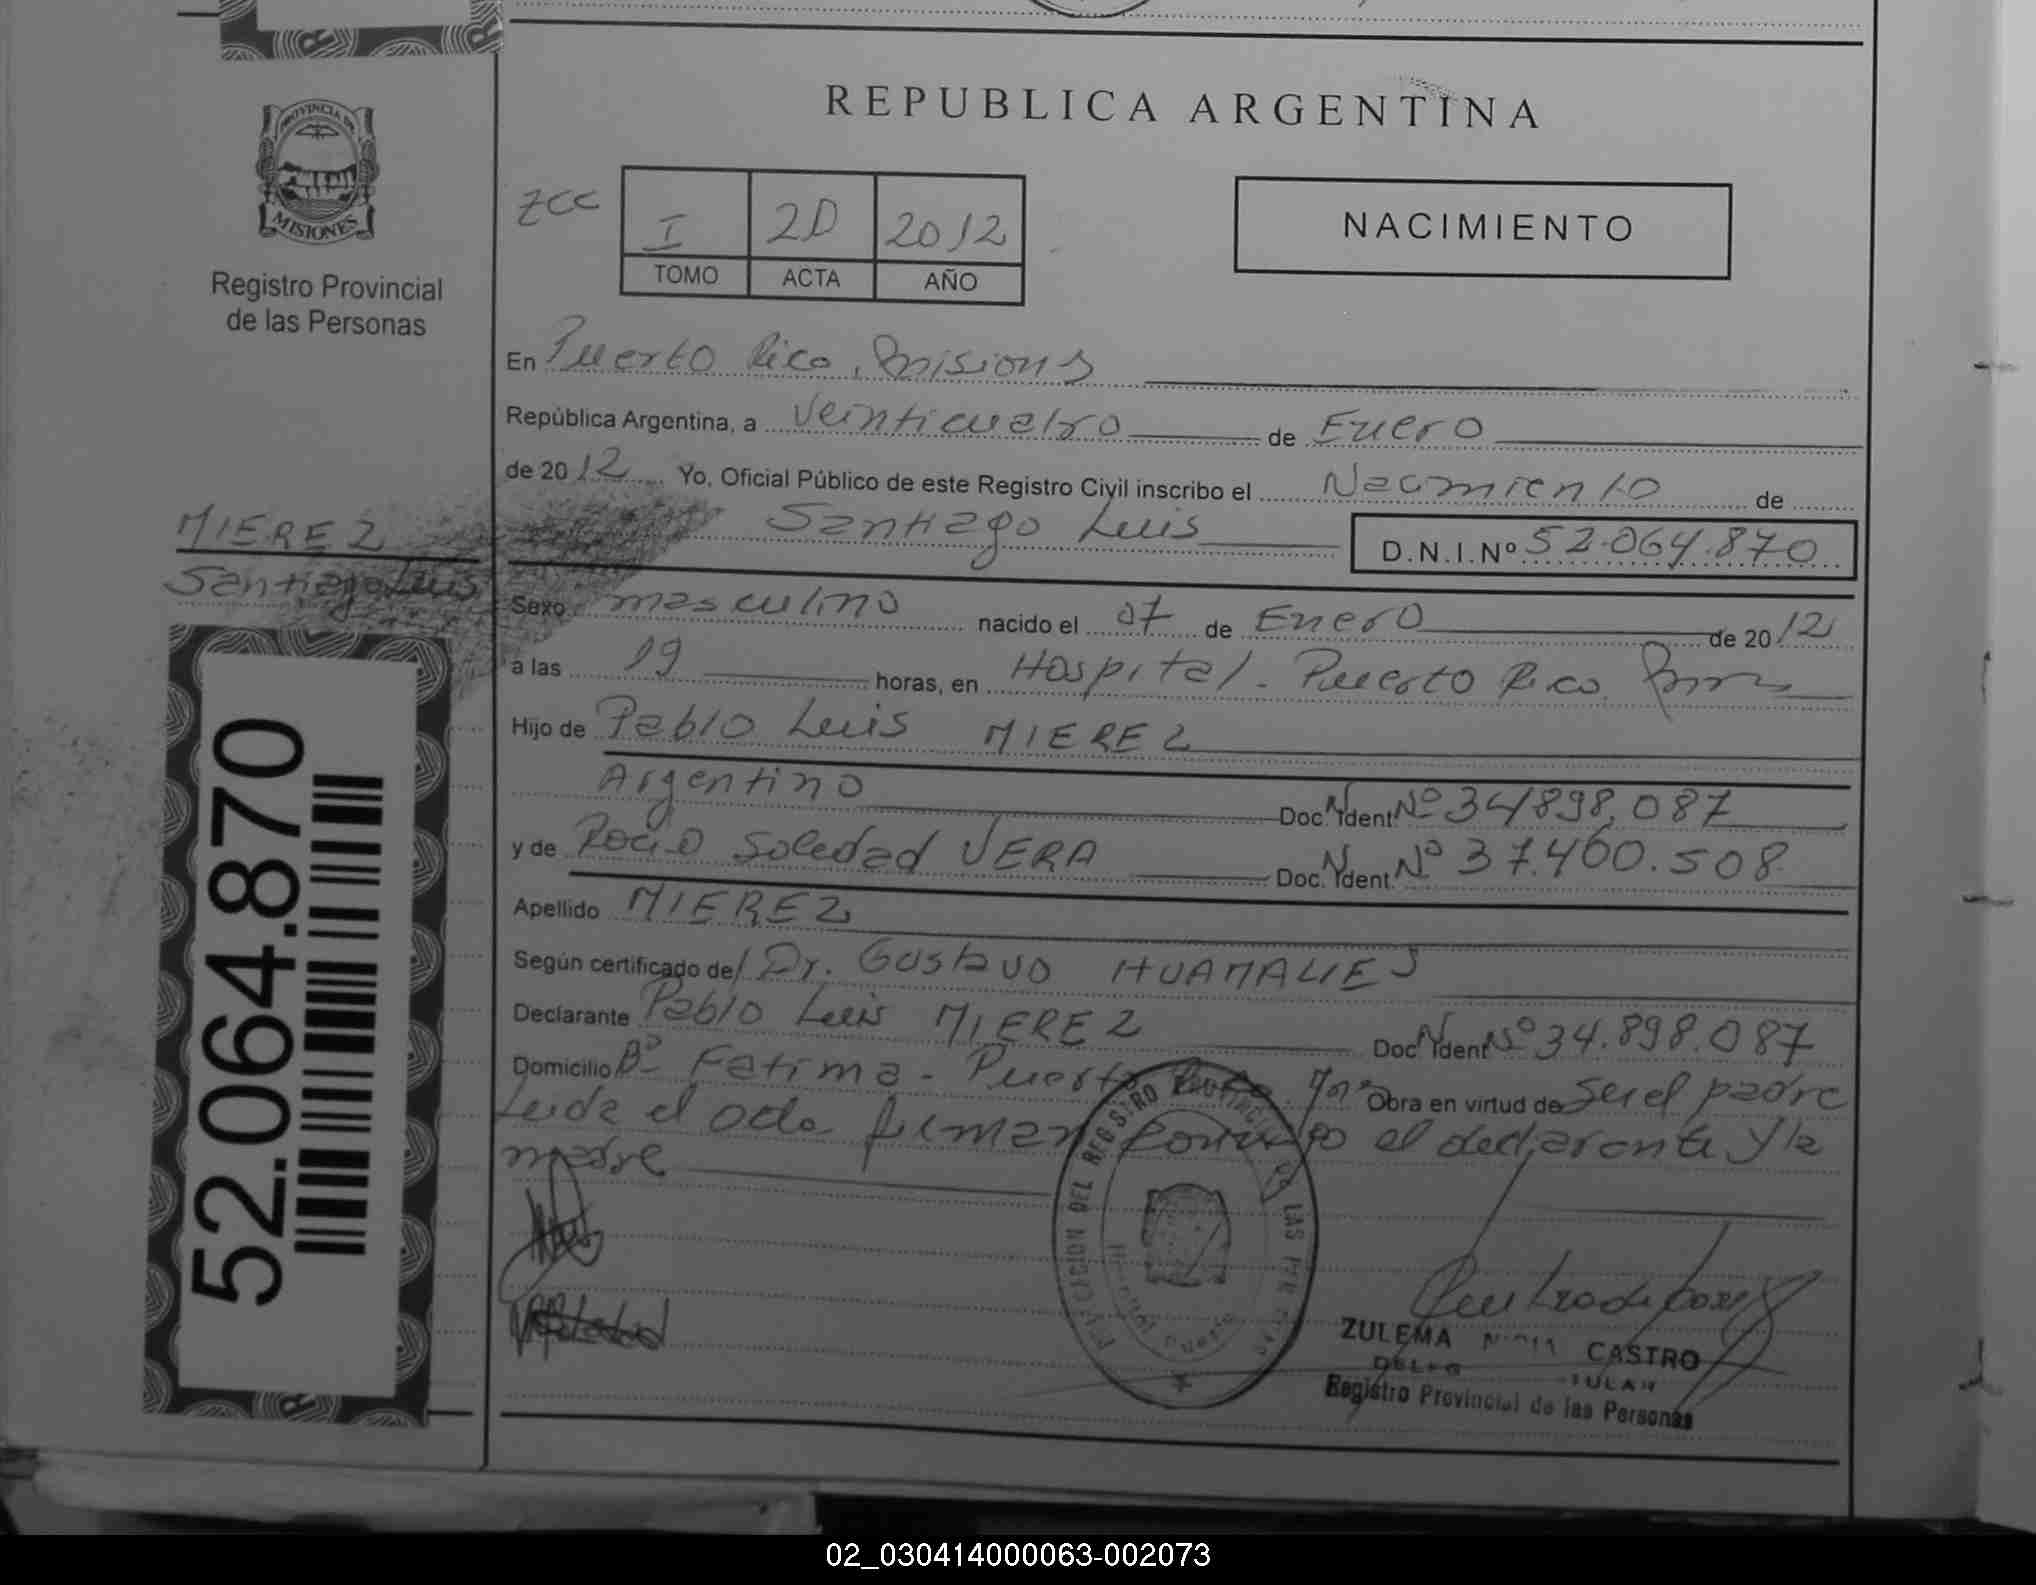 REPUBLICA ARGENTINA
PROVINCIA DE
MISIONES
Registro Provincial
de las Personas
ZCC
I 2D 2012
TOMO ACTA AÑO
NACIMIENTO
En Puerto Rico, Misiones
República Argentina, a Veinticuatro de Enero
de 2012 Yo, Oficial Público de este Registro Civil inscribo el Nacimiento de
Santiago Luis D.N.I.Nº 52.064.870
MIEREZ
Santiago Luis
Sexo masculino nacido el 07 de Enero de 2012
a las 19 horas, en Hospital - Puerto Rico
Hijo de Pablo Luis MIEREZ
Argentino Doc. Ident. Nº 34898,087
y de Rocio Soledad VERA Doc. Ident. Nº 37.460.508
Apellido MIEREZ
Según certificado del Dr. Gustavo HUAMALIES
Declarante Pablo Luis MIEREZ Doc. Ident. Nº 34.898.087
Domicilio Bº Fatima - Puerto Rico. Obra en virtud de Ser el padre
Leida el acta firman conmigo el declarante y la
madre
52.064.870
DEL REGISTRO PROVINCIAL DE LAS
ZULEMA CASTRO
Registro Provincial de las Personas
02_030414000063-002073